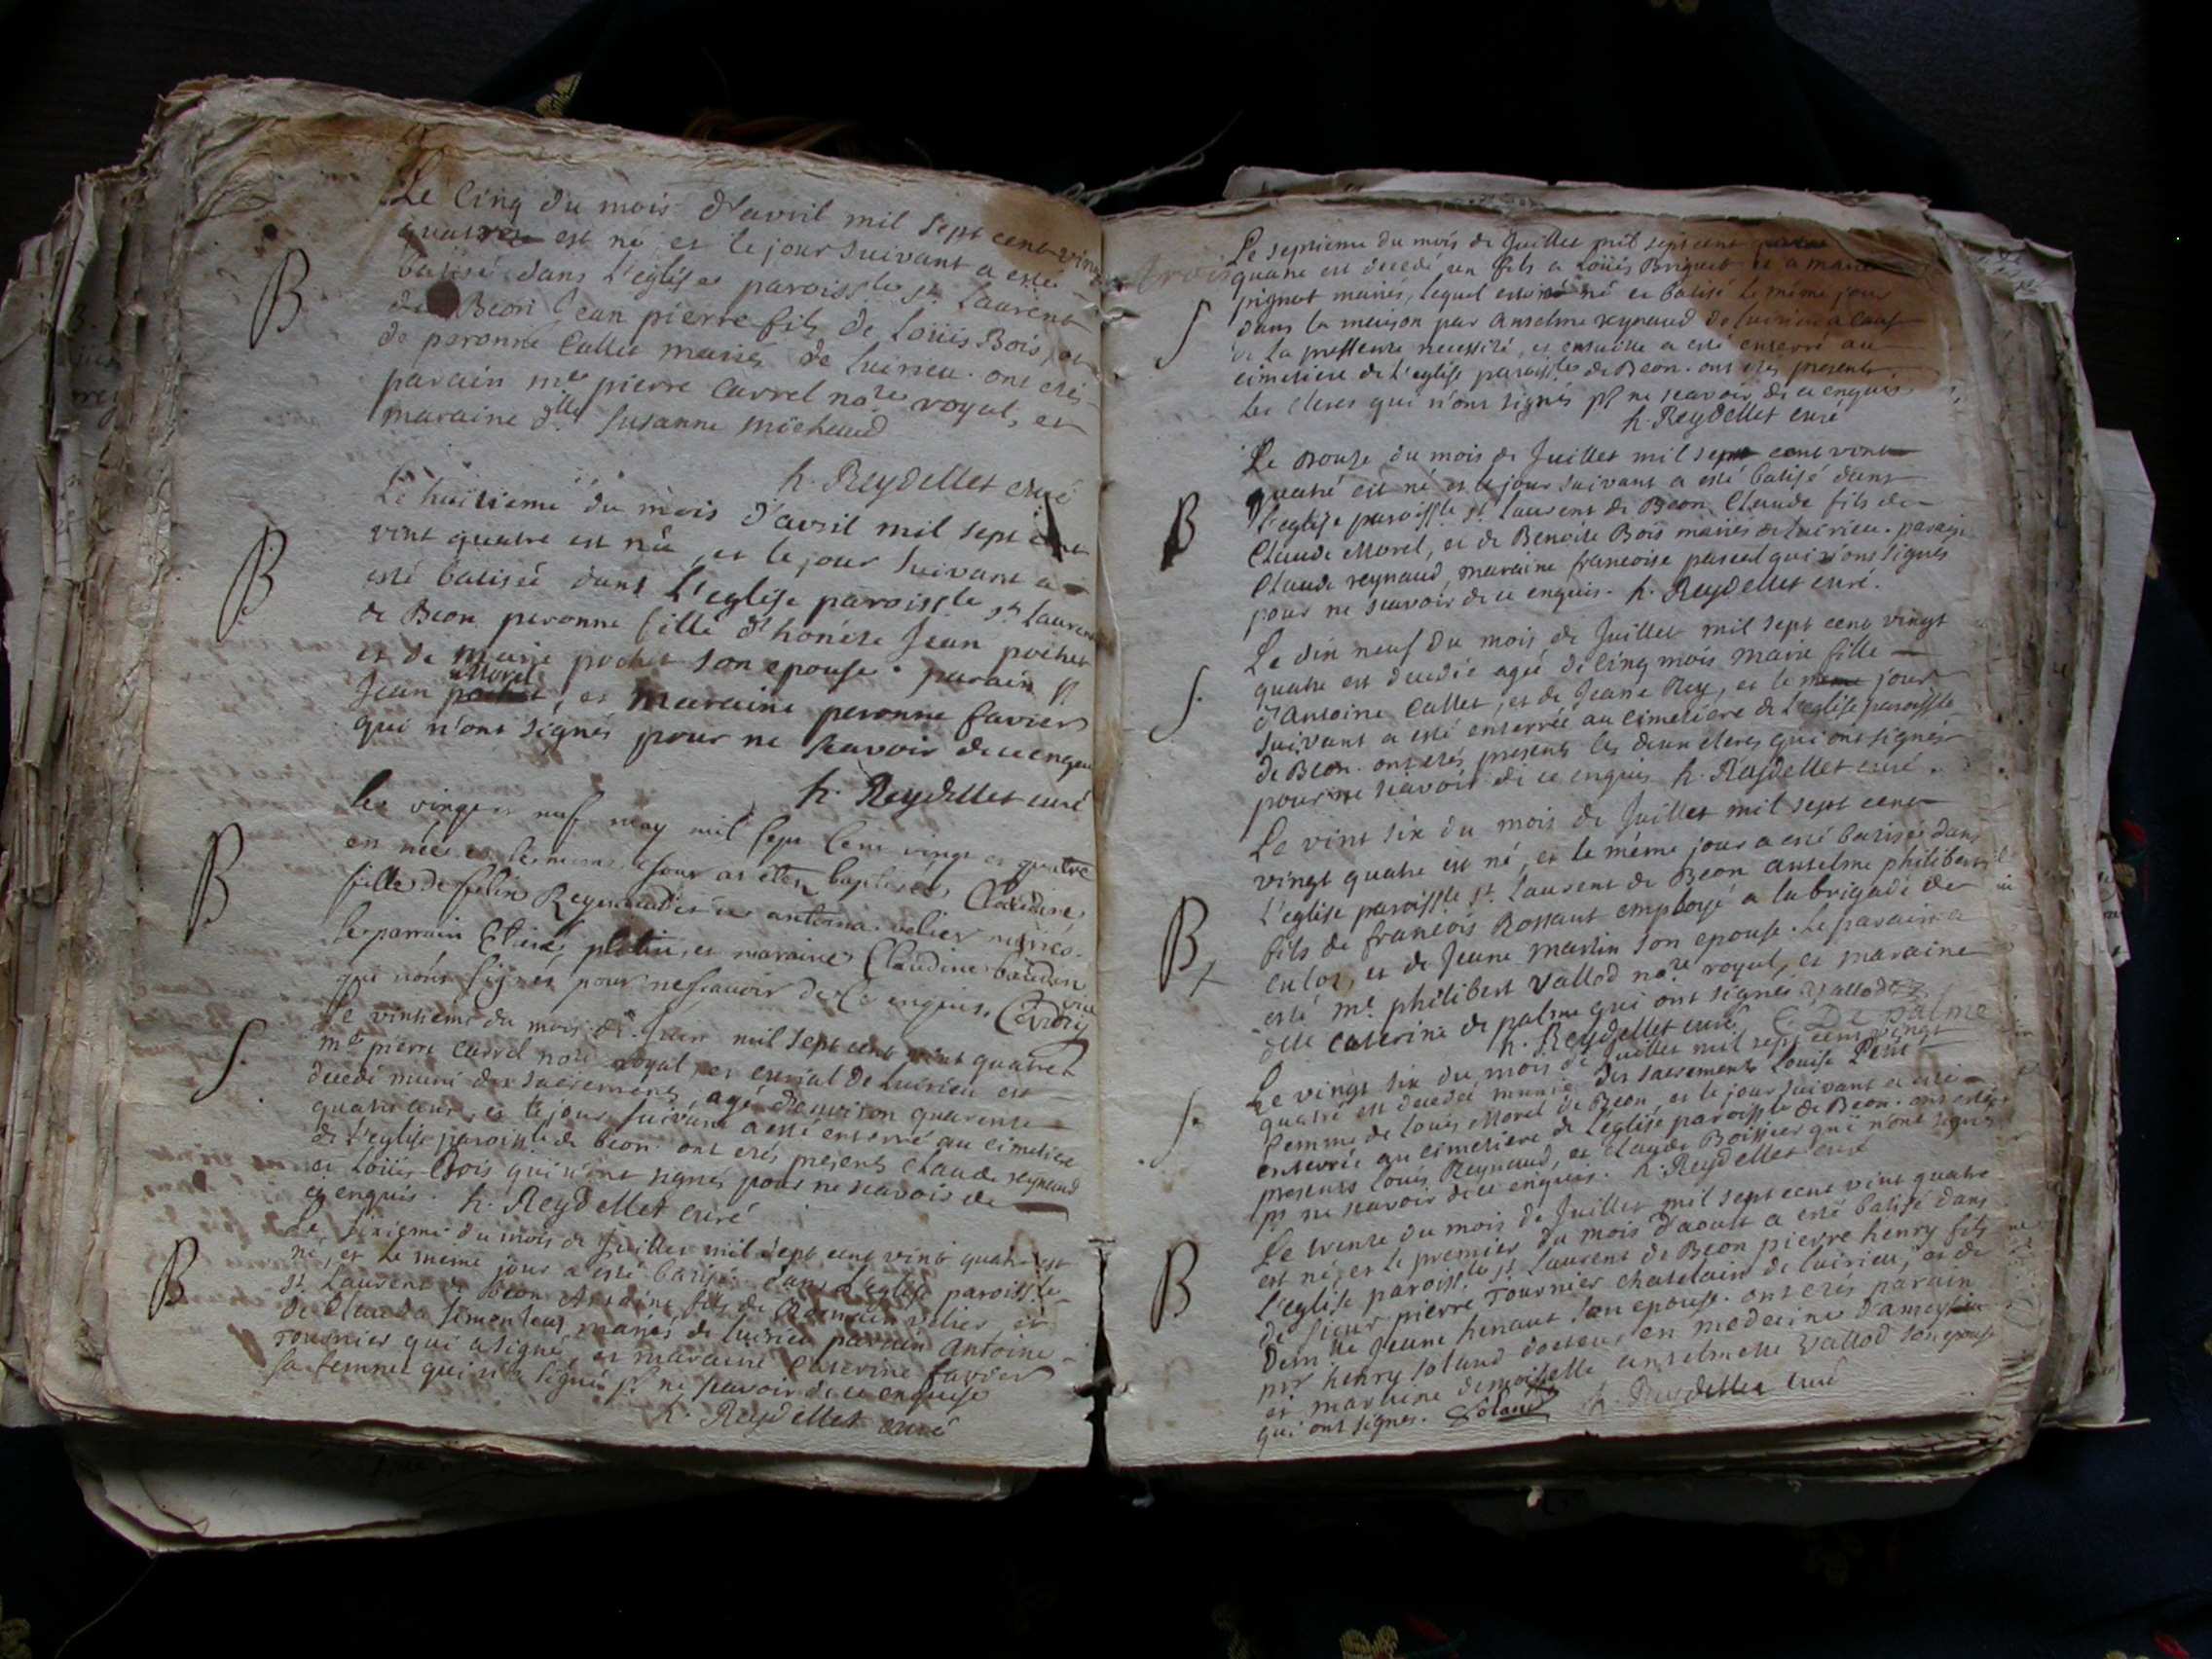 Le Cinq du mois d'avril mil sept cent vin
quatre est né, et le jour suivant a esté
B
batisé dans l'eglise paroissle st. Laurent
de Beon Jean pierre fils de Loüis Bois, et
de peronne Callet mariés de Luirieu. ont etés
parain me pierre Carrel nore royal, et
maraine dlle Susanne Michaud
h. Reydellet curé
Le huitieme du mois d'avril mil sept cent
vint quatre est née, et le jour suivant a
B
esté batisée dans L'eglise paroissle st. Lauren
de Beon peronne fille d'honéte Jean pochet
et de Marie pochet son epouse. parain
Morel
Jean, et maraine peronne favier
qui n'ont signés pour ne scavoir de ce enquis
h. Reydellet curé
Le vingt et neuf may mil sept cent vingt et quattre
B
et le mesme jour baptisée Claudine
fille de felix Reynaud et antoina velier mariés
le parrain et maraine Claudine baudin
qui n'ont signés pour ne scavoir de ce enquis.
Le vintieme du mois de Juin mil sept cent vint quatre
S.
me pierre Carrel nore royal, et curial de Luirieu est
decedé muni des sacrements, agé d'environ quarente
quatre ans, et le jour suivant a esté enterré au cimetiere
de l'eglise paroissle de beon. ont etés presents Claude reynaud
et Loüis Bois qui n'ont signés pour ne scavoir de
ce enquis. h. Reydellet curé
Le sixieme du mois de Juillet mil sept cent vint quatre est
né, et le meme jour a esté batisé dans l'eglise paroissle
B
st. Laurent de Beon Antoine fils de velier, et
de Clauda mariés de luirieu parain Antoine
Tournier qui a signé, et maraine Caterine favier
sa femme qui n'a signé pr ne scavoir de ce enquise
h. Reydellet curé
Le septieme du mois de Juillet mil sept cent
trois quatre est decedé un fils a Loüis Briquet et a marie
pignot mariés, lequel est né et batisé le même jour
S
dans la maison par Anselme reynaud de luirieu a cause
de la pressente necessité, et ensuitte a esté enterré au
cimetiere de l'eglise paroissle de Beon. ont etés presents
les cleres qui n'ont signés pr ne scavoir de ce enquis
h. Reydellet curé
Le douze du mois de Juillet mil sept cent vint
quatre est né et le jour suivant a esté batisé dans
B
l'eglise paroissle st. Laurent de Beon Claude fils de
Claude Morel, et de Benoite Bois mariés de luirieu. parain
Claude reynaud, maraine francoise pascal qui n'ont signés
pour ne scavoir de ce enquis. h. Reydellet curé.
Le dix neuf du mois de Juillet mil sept cent vingt
quatre est decedée agée de Cinq mois Marie fille
S.
d'Antoine Callet, et de Jeane Rey, et le jour
suivant a esté enterrée au cimetiere de l'eglise paroissle
de Beon. ont etés presents les deux cleres qui ont signés
pour ne scavoir de ce enquis h. Reydellet curé.
Le vint six du mois de Juillet mil sept cent
vingt quatre est né, et le méme jour a esté batisée dans
L'eglise paroissle st. Laurent de Beon anselme philibert
B
fils de francois Rossaut employé a la brigade de
culoz, et de Jeane Martin son epouse. Le parain a
esté me. philibert Vallod nore royal, et maraine
delle Caterine de palme qui ont signés Vallod
h. Reydellet curé C. De palme
Le vingt six du mois de Juillet mil sept cent vingt
quatre est decedée munie des sacrements Louise
S.
femme de Louis Morel de Beon, et le jour suivant a esté
enterrée au cimetiere de l'eglise paroissle de Beon. ont estés
presents Loüis Reynaud, et Claude Boissier qui n'ont signés
pr ne scavoir de ce enquis. h. Reydellet curé
Le trente du mois de Juillet mil sept cent vint quatre
est né, et le premier du mois d'aoust a esté batisé dans
B
l'eglise paroissle st. Laurent de Beon pierre henry fils
de sieur pierre Tournier chatelain de luirieu, et de
Demlle Jeane henaut son epouse. ont etés parain
mr henry Soland docteur en medecine
et maraine demoiselle anselmette Vallod son epouse
qui ont signes. Soland h. Reydellet curé